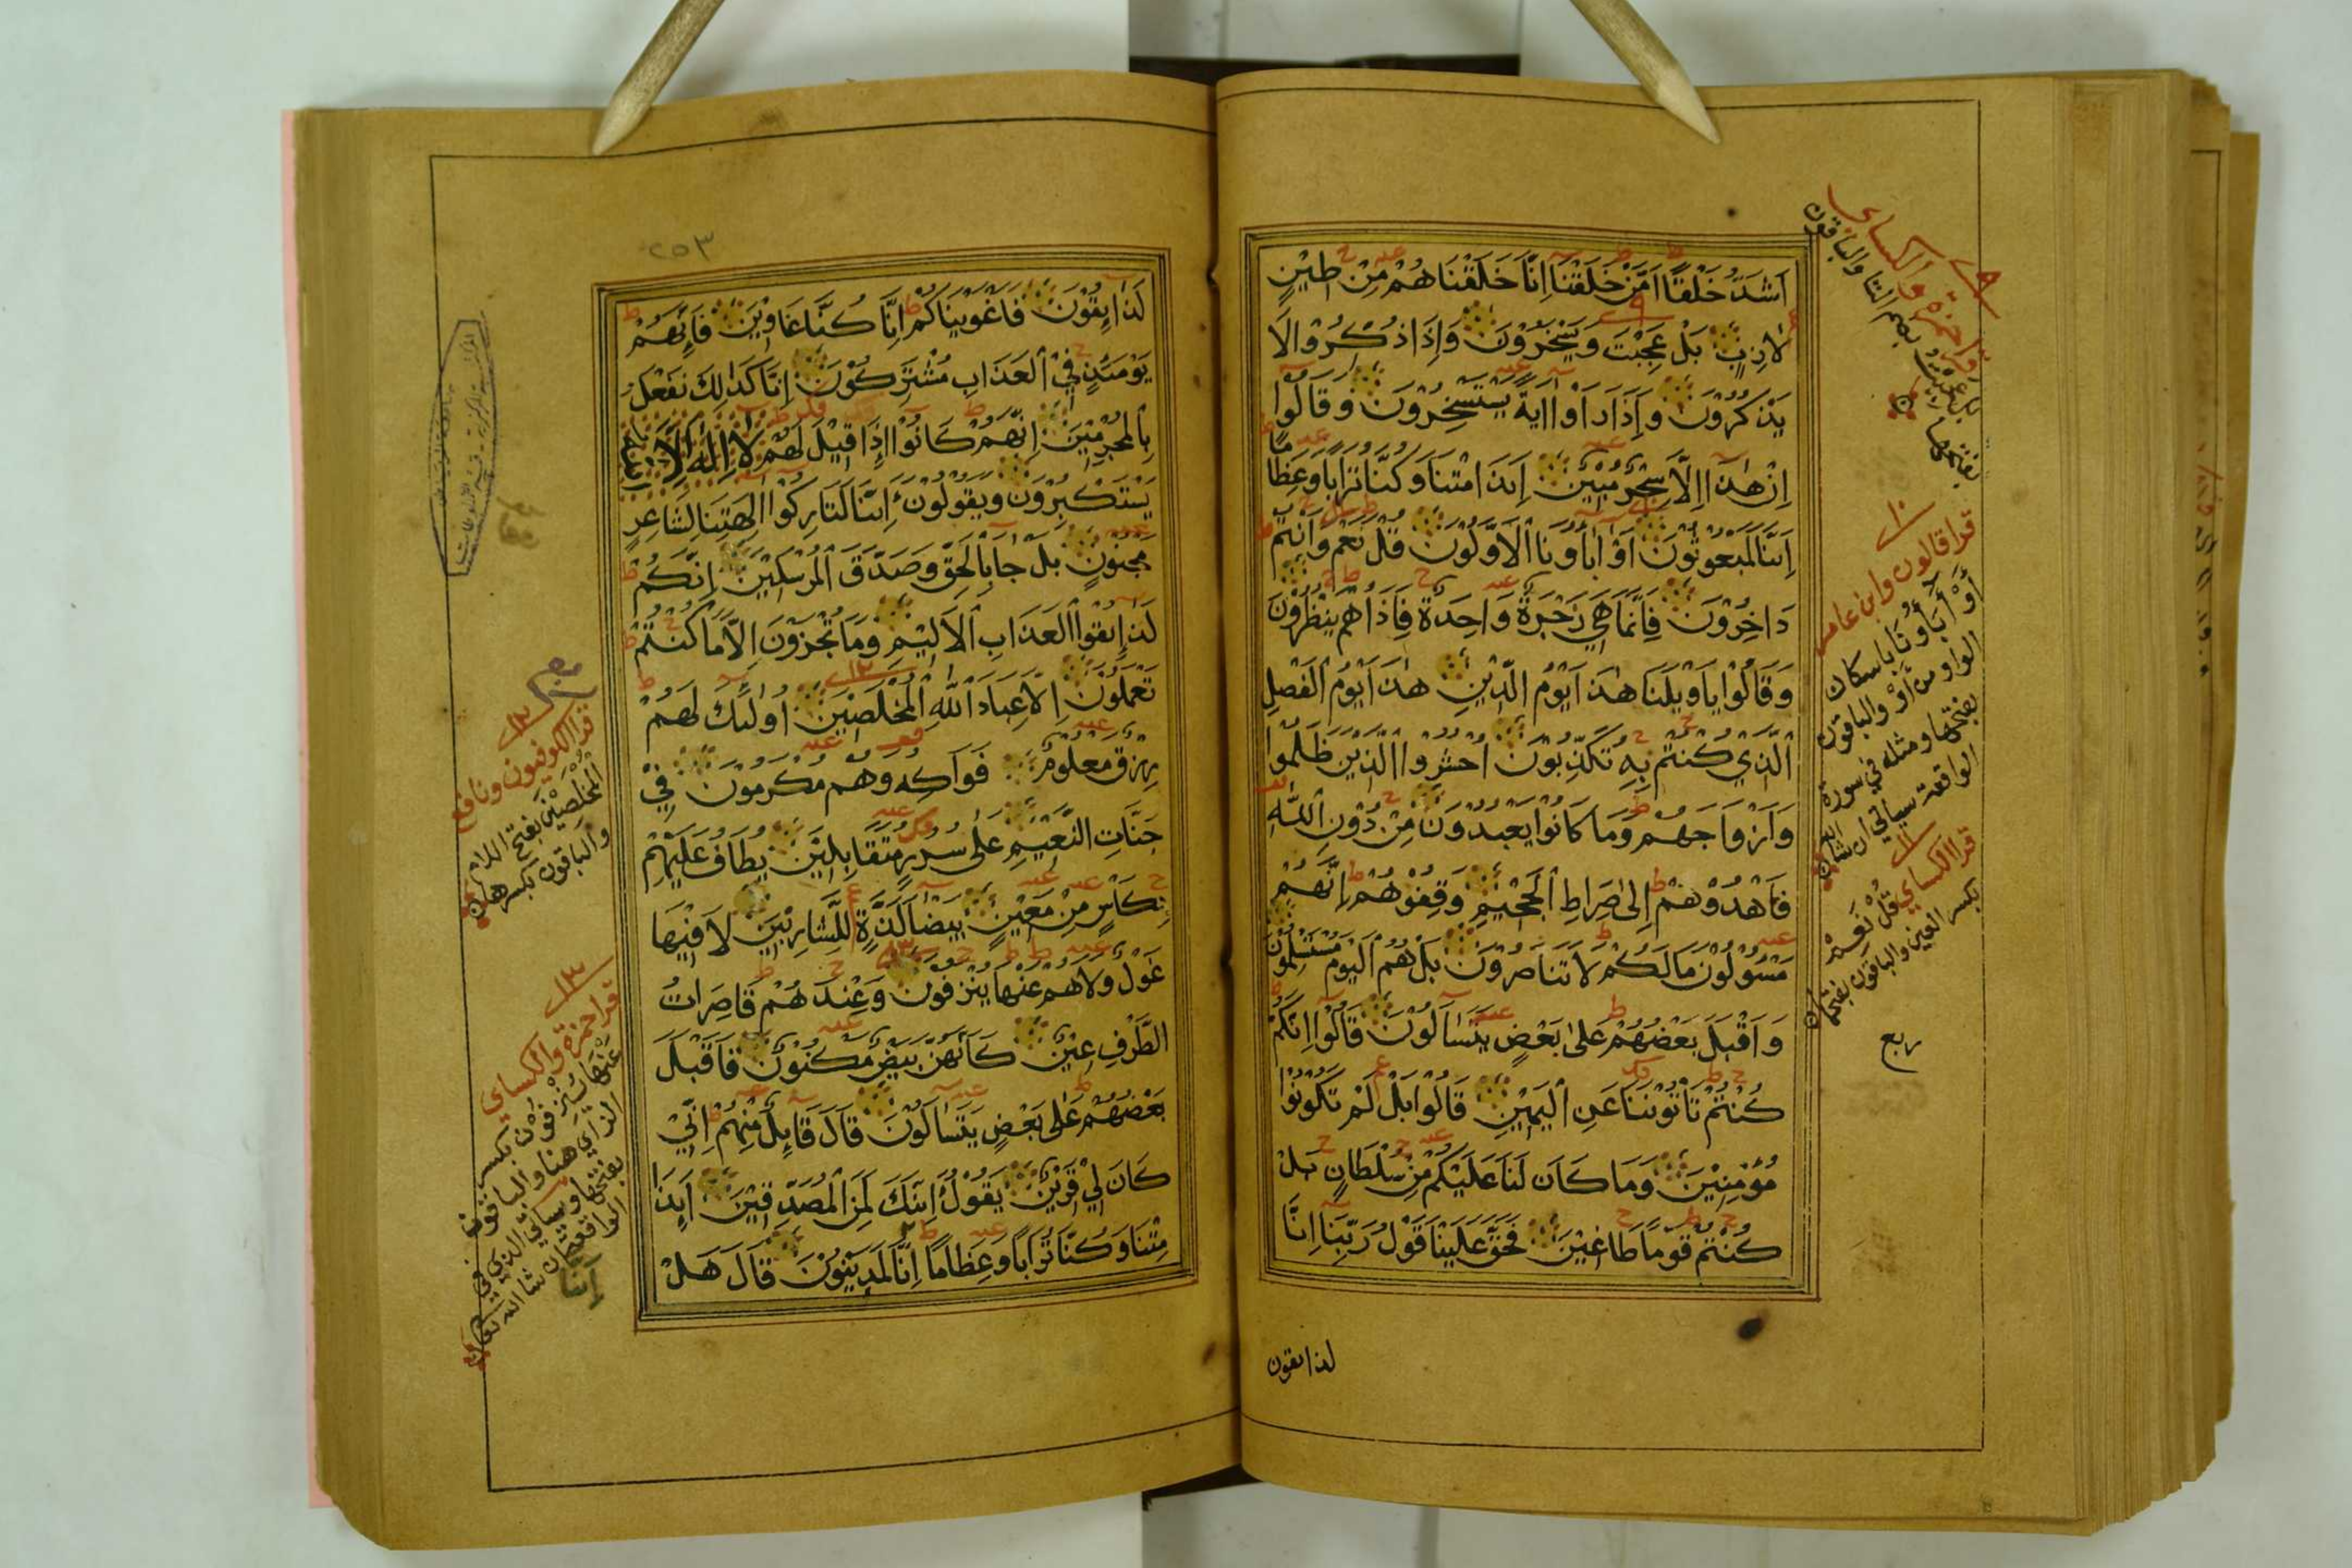 اَشَدُّ خَلْقًا اَمْ مَّنْ خَلَقْنَا اِنَّا خَلَقْنَاهُمْ مِنْ طِيْنٍ
لَازِبٍ بَلْ عَجِبْتَ وَيَسْخَرُوْنَ وَاِذَا ذُكِّرُوْا لَا
يَذْكُرُوْنَ وَاِذَا رَاَوْا اٰيَةً يَسْتَسْخِرُوْنَ وَقَالُوْا
اِنْ هٰذَا اِلَّا سِحْرٌ مُبِيْنٌ اَئِذَا مِتْنَا وَكُنَّا تُرَابًا وَعِظَامًا
اَئِنَّا لَمَبْعُوْثُوْنَ اَوَ اٰبَاؤُنَا الْاَوَّلُوْنَ قُلْ نَعَمْ وَاَنْتُمْ
دَاخِرُوْنَ فَاِنَّمَا هِيَ زَجْرَةٌ وَاحِدَةٌ فَاِذَا هُمْ يَنْظُرُوْنَ
وَقَالُوْا يَا وَيْلَنَا هٰذَا يَوْمُ الدِّيْنِ هٰذَا يَوْمُ الْفَصْلِ
الَّذِيْ كُنْتُمْ بِهٖ تُكَذِّبُوْنَ اُحْشُرُوا الَّذِيْنَ ظَلَمُوْا
وَاَزْوَاجَهُمْ وَمَا كَانُوْا يَعْبُدُوْنَ مِنْ دُوْنِ اللّٰهِ
فَاهْدُوْهُمْ اِلٰى صِرَاطِ الْجَحِيْمِ وَقِفُوْهُمْ اِنَّهُمْ
مَسْئُوْلُوْنَ مَا لَكُمْ لَا تَنَاصَرُوْنَ بَلْ هُمُ الْيَوْمَ مُسْتَسْلِمُوْنَ
وَاَقْبَلَ بَعْضُهُمْ عَلٰى بَعْضٍ يَتَسَاءَلُوْنَ قَالُوْا اِنَّكُمْ
كُنْتُمْ تَاْتُوْنَنَا عَنِ الْيَمِيْنِ قَالُوْا بَلْ لَمْ تَكُوْنُوْا
مُؤْمِنِيْنَ وَمَا كَانَ لَنَا عَلَيْكُمْ مِنْ سُلْطَانٍ بَلْ
كُنْتُمْ قَوْمًا طَاغِيْنَ فَحَقَّ عَلَيْنَا قَوْلُ رَبِّنَا اِنَّا
لذايقون
قرا حمزة والكساي
بل عجبت بضم التا والباقون
بفتحها
قرا قالون وابن عامر
أَوْ أَبَاؤُنَا باسكان
الواو من أوْ والباقون
بفتحها ومثله في سورة
الواقعة سياتي ان شا الله
قرا الكساي قُلْ نَعِمْ
بكسر العين والباقون بفتحها
ربع
٢٥٣
لَذَايِقُوْنَ فَاَغْوَيْنَاكُمْ اِنَّا كُنَّا غَاوِيْنَ فَاِنَّهُمْ
يَوْمَئِذٍ فِي الْعَذَابِ مُشْتَرِكُوْنَ اِنَّا كَذٰلِكَ نَفْعَلُ
بِالْمُجْرِمِيْنَ اِنَّهُمْ كَانُوْا اِذَا قِيْلَ لَهُمْ لَا اِلٰهَ اِلَّا اللّٰهُ
يَسْتَكْبِرُوْنَ وَيَقُوْلُوْنَ اَئِنَّا لَتَارِكُوْا اٰلِهَتِنَا لِشَاعِرٍ
مَجْنُوْنٍ بَلْ جَا بِالْحَقِّ وَصَدَّقَ الْمُرْسَلِيْنَ اِنَّكُمْ
لَذَايِقُوا الْعَذَابِ الْاَلِيْمِ وَمَا تُجْزَوْنَ اِلَّا مَا كُنْتُمْ
تَعْمَلُوْنَ اِلَّا عِبَادَ اللّٰهِ الْمُخْلَصِيْنَ اُولٰئِكَ لَهُمْ
رِزْقٌ مَعْلُوْمٌ فَوَاكِهُ وَهُمْ مُكْرَمُوْنَ فِيْ
جَنَّاتِ النَّعِيْمِ عَلٰى سُرُرٍ مُتَقَابِلِيْنَ يُطَافُ عَلَيْهِمْ
بِكَاْسٍ مِنْ مَعِيْنٍ بَيْضَا لَذَّةٍ لِلشَّارِبِيْنَ لَا فِيْهَا
غَوْلٌ وَلَا هُمْ عَنْهَا يُنْزَفُوْنَ وَعِنْدَهُمْ قَاصِرَاتُ
الطَّرْفِ عِيْنٌ كَاَنَّهُنَّ بَيْضٌ مَكْنُوْنٌ فَاَقْبَلَ
بَعْضُهُمْ عَلٰى بَعْضٍ يَتَسَاءَلُوْنَ قَالَ قَايِلٌ مِنْهُمْ اِنِّيْ
كَانَ لِيْ قَرِيْنٌ يَقُوْلُ اَئِنَّكَ لَمِنَ الْمُصَدِّقِيْنَ اَئِذَا
مِتْنَا وَكُنَّا تُرَابًا وَعِظَامًا اِنَّا لَمَدِيْنُوْنَ قَالَ هَلْ
قرا الكوفيون ونافع
المُخْلَصِيْنَ بفتح اللام
والباقون بكسرها
قرا حمزة والكساي
عنها يُنْزِفُوْنَ بكسر
الزاي هنا والباقون
بفتحها وسياتي الذي في
الواقعة ان شا الله تعالى
أئنا